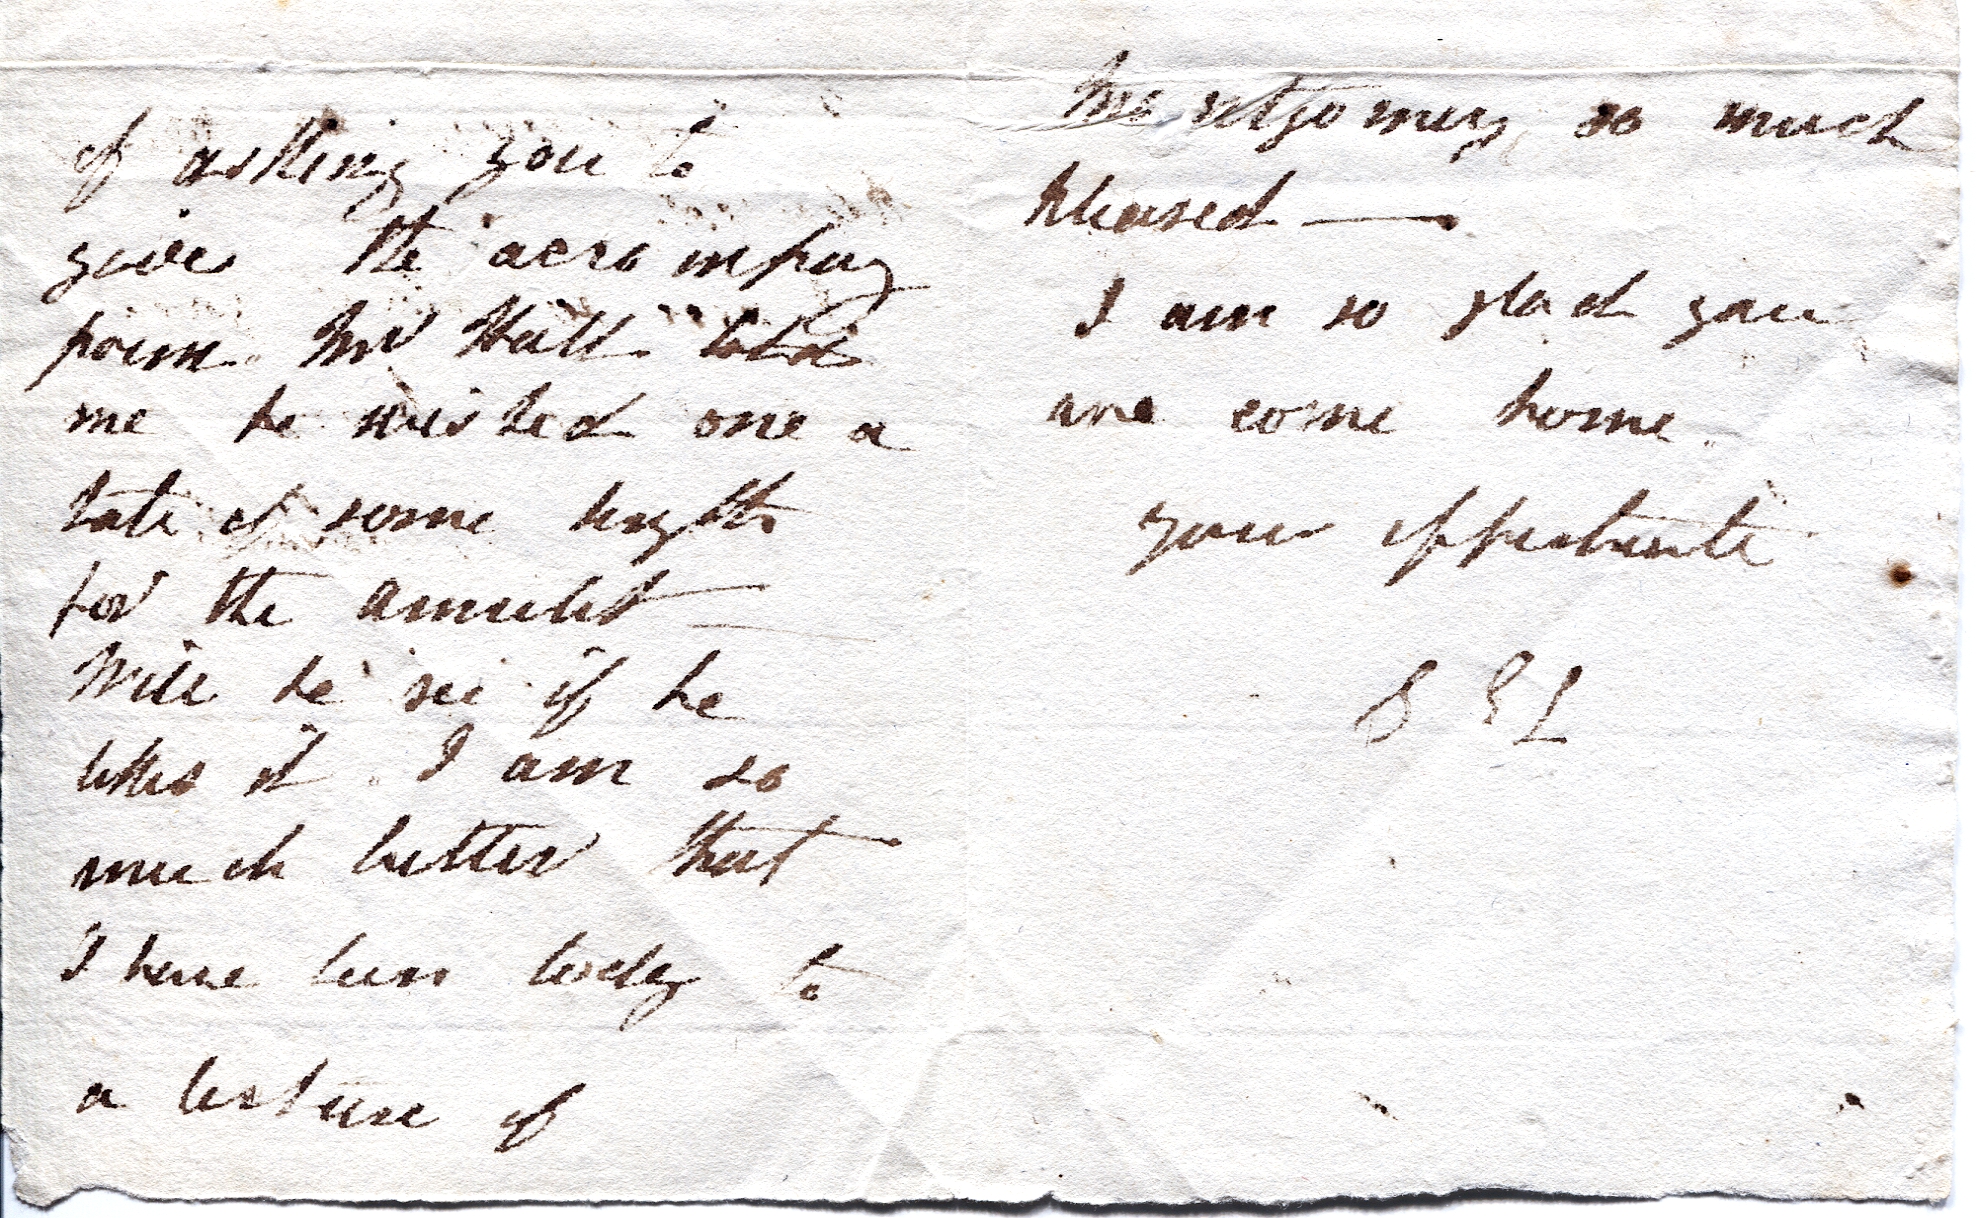 of asking you to
give the accompany
poem. Mr Hall told
me he wished one a
tale of some length
for the amulet —
Will he see if he
likes it. I am so
much better that
I have been today to
a lecture of
Montgomery so much
pleased —
I am so glad you
are come home.
your affectionate
L E L